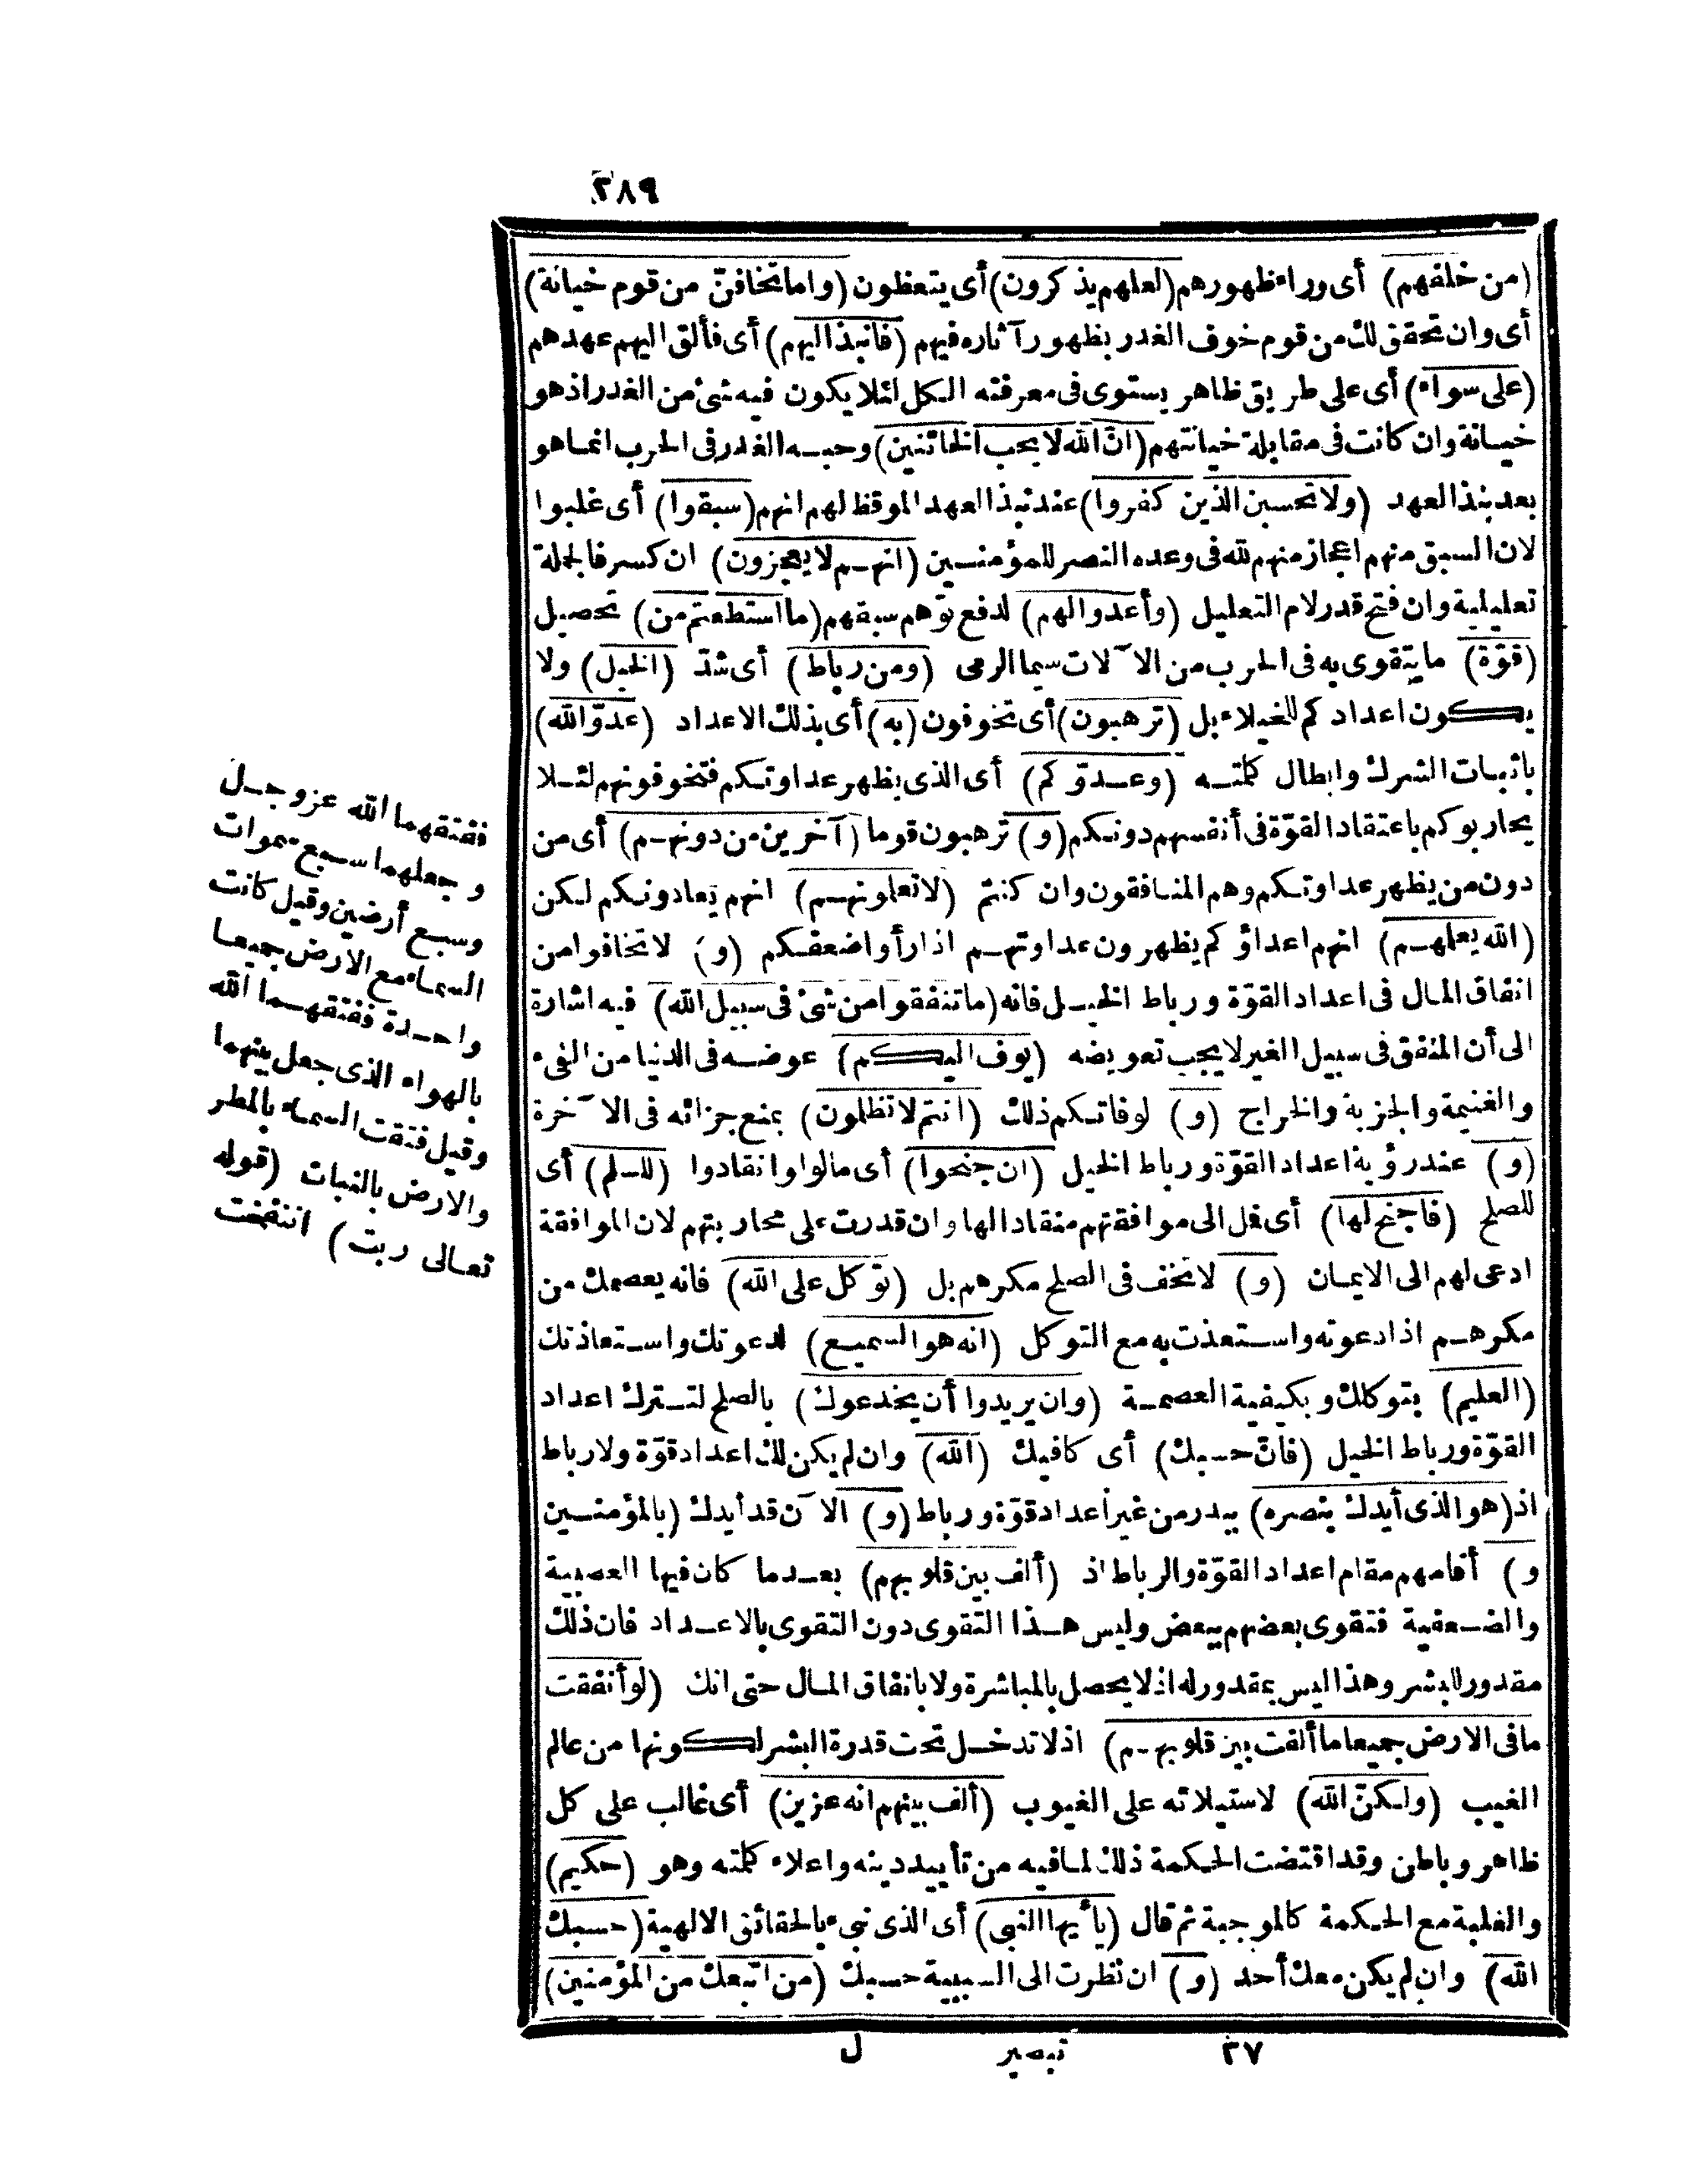 ٢٨٩
(من خلفهم) أى وراء ظهورهم (لعلهم يذكرون) أى يتعظون (واما تخافنّ من قوم خيانة)
أى وان تحقق لك من قوم خوف الغدر بظهور آثاره فيهم (فانبذ اليهم) أى فألق اليهم عهدهم
(على سواء) أى على طريق ظاهر يستوى فى معرفته الكل لئلا يكون فيه شئ من الغدر اذ هو
خيانة وان كانت فى مقابلة خيانتهم (انّ الله لا يحب الخائنين) وحبه الغدر فى الحرب انما هو
بعد نبذ العهد (ولا تحسبن الذين كفروا) عند نبذ العهد الموقظ لهم انهم (سبقوا) أى غلبوا
لان السبق منهم اعجاز منهم لله فى وعده النصر للمؤمنين (انهم لا يعجزون) ان كسر فالجملة
تعليلية وان فتح قدر لام التعليل (وأعدوا لهم) لدفع توهم سبقهم (ما استطعتم من) تحصيل
(قوّة) ما يتقوى به فى الحرب من الآلات سيما الرمى (ومن رباط) أى شدّ (الخيل) ولا
يكون اعدادكم للخيلاء بل (ترهبون) أى تخوفون (به) أى بذلك الاعداد (عدوّ الله)
باثبات الشرك وابطال كلمته (وعدوّكم) أى الذى يظهر عداوتكم فتخوفونهم لئلا
يحاربوكم باعتقاد القوّة فى أنفسهم دونكم (و) ترهبون قوما (آخرين من دونهم) أى من
دون من يظهر عداوتكم وهم المنافقون وان كنتم (لا تعلمونهم) انهم يعادونكم لكن
(الله يعلمهم) انهم اعداؤكم يظهرون عداوتهم اذا رأوا ضعفكم (و) لا تخافوا من
انفاق المال فى اعداد القوّة ورباط الخيل فانه (ما تنفقوا من شئ فى سبيل الله) فيه اشارة
الى أن المنفق فى سبيل الغير لا يجب تعويضه (يوف اليكم) عوضه فى الدنيا من الفىء
والغنيمة والجزية والخراج (و) لو فاتكم ذلك (انتم لا تظلمون) بمنع جزائه فى الآخرة
(و) عند رؤية اعداد القوّة ورباط الخيل (ان جنحوا) أى مالوا وانقادوا (للسلم) أى
للصلح (فاجنح لها) أى فمل الى موافقتهم منقادا لها وان قدرت على محاربتهم لان الموافقة
ادعى لهم الى الايمان (و) لا تخف فى الصلح مكرهم بل (توكل على الله) فانه يعصمك من
مكرهم اذا دعوته واستعذت به مع التوكل (انه هو السميع) لدعوتك واستعاذتك
(العليم) بتوكلك وبكيفية العصمة (وان يريدوا أن يخدعوك) بالصلح لتترك اعداد
القوّة ورباط الخيل (فانّ حسبك) أى كافيك (الله) وان لم يكن لك اعداد قوّة ولا رباط
اذ (هو الذى أيدك بنصره) ببدر من غير اعداد قوّة ورباط (و) الآن قد أيدك (بالمؤمنين
و) أقامهم مقام اعداد القوّة والرباط اذ (ألف بين قلوبهم) بعدما كان فيها العصبية
والضعفية فتقوى بعضهم ببعض وليس هذا التقوى دون التقوى بالاعداد فان ذلك
مقدور للبشر وهذا ليس بمقدور له اذ لا يحصل بالمباشرة ولا بانفاق المال حتى انك (لو أنفقت
ما فى الارض جميعا ما ألفت بين قلوبهم) اذ لا تدخل تحت قدرة البشر لكونها من عالم
الغيب (ولكنّ الله) لاستيلائه على الغيوب (ألف بينهم انه عزيز) أى غالب على كل
ظاهر وباطن وقد اقتضت الحكمة ذلك لما فيه من تأييد دينه واعلاء كلمته وهو (حكيم)
والغلبة مع الحكمة كالموجبة ثم قال (يا أيها النبى) أى الذى نبىء بالحقائق الالهية (حسبك
الله) وان لم يكن معك أحد (و) ان نظرت الى السببية حسبك (من اتبعك من المؤمنين)
ففتقهما الله عز وجل
وجعلهما سبع سموات
وسبع أرضين وقيل كانت
السماء مع الارض جميعا
واحدة ففتقهما الله
بالهواء الذى جعل بينهما
وقيل فتقت السماء بالمطر
والارض بالنبات (قوله
تعالى ربت) انتفخت
٣٧ تبصير ل